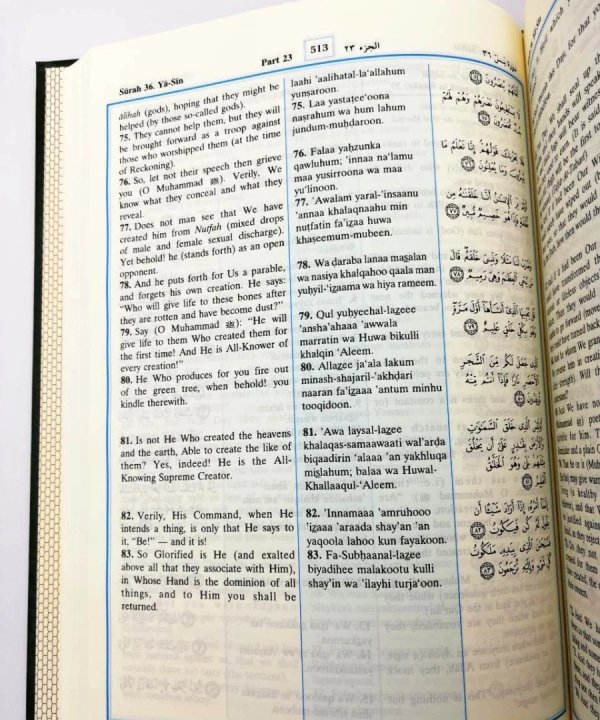 Sûrah 36. Yâ-Sîn
Part 23
513
الجزء ٢٣
سورة يس ٣٦
âlihah (gods), hoping that they might be
helped (by those so-called gods).
75. They cannot help them, but they will
be brought forward as a troop against
those who worshipped them (at the time
of Reckoning).
76. So, let not their speech then grieve
you (O Muhammad ﷺ). Verily, We
know what they conceal and what they
reveal.
77. Does not man see that We have
created him from Nutfah (mixed drops
of male and female sexual discharge).
Yet behold! he (stands forth) as an open
opponent.
78. And he puts forth for Us a parable,
and forgets his own creation. He says:
"Who will give life to these bones after
they are rotten and have become dust?"
79. Say (O Muhammad ﷺ): "He will
give life to them Who created them for
the first time! And He is All-Knower of
every creation!"
80. He Who produces for you fire out
of the green tree, when behold! you
kindle therewith.
81. Is not He Who created the heavens
and the earth, Able to create the like of
them? Yes, indeed! He is the All-
Knowing Supreme Creator.
82. Verily, His Command, when He
intends a thing, is only that He says to
it, "Be!" — and it is!
83. So Glorified is He (and exalted
above all that they associate with Him),
in Whose Hand is the dominion of all
things, and to Him you shall be
returned.
laahi 'aalihatal-la'allahum
yunsaroon.
75. Laa yastatee'oona
naṣrahum wa hum lahum
jundum-muḥḍaroon.
76. Falaa yaḥzunka
qawluhum; 'innaa na'lamu
maa yusirroona wa maa
yu'linoon.
77. 'Awalam yaral-'insaanu
'annaa khalaqnaahu min
nuṭfatin fa'izaa huwa
khaseemum-mubeen.
78. Wa daraba lanaa maṣalan
wa nasiya khalqahoo qaala man
yuḥyil-'izaama wa hiya rameem.
79. Qul yuhyeehal-lazeee
'ansha'ahaaa 'awwala
marratin wa Huwa bikulli
khalqin 'Aleem.
80. Allazee ja'ala lakum
minash-shajaril-'akhdari
naaran fa'izaaa 'antum minhu
tooqidoon.
81. 'Awa laysal-lazee
khalaqas-samaawaati wal'arḍa
biqaadirin 'alaaa 'an yakhluqa
miṣlahum; balaa wa Huwal-
Khallaaqul-'Aleem.
82. 'Innamaaa 'amruhooo
'izaaa 'araada shay'an 'an
yaqoola lahoo kun fayakoon.
83. Fa-Subḥaanal-lazee
biyadihee malakootu kulli
shay'in wa 'ilayhi turja'oon.
يُنصَرُونَ ٧٤
لَا يَسْتَطِيعُونَ نَصْرَهُمْ وَهُمْ لَهُمْ
جُندٌ مُّحْضَرُونَ ٧٥
فَلَا يَحْزُنكَ قَوْلُهُمْ إِنَّا نَعْلَمُ مَا
يُسِرُّونَ وَمَا يُعْلِنُونَ ٧٦
أَوَلَمْ يَرَ الْإِنسَانُ أَنَّا خَلَقْنَاهُ مِن
نُّطْفَةٍ فَإِذَا هُوَ خَصِيمٌ مُّبِينٌ ٧٧
وَضَرَبَ لَنَا مَثَلًا وَنَسِيَ خَلْقَهُ قَالَ
مَن يُحْيِ الْعِظَامَ وَهِيَ رَمِيمٌ ٧٨
قُلْ يُحْيِيهَا الَّذِي أَنشَأَهَا أَوَّلَ مَرَّةٍ
وَهُوَ بِكُلِّ خَلْقٍ عَلِيمٌ ٧٩
الَّذِي جَعَلَ لَكُم مِّنَ الشَّجَرِ
الْأَخْضَرِ نَارًا فَإِذَا أَنتُم مِّنْهُ
تُوقِدُونَ ٨٠
أَوَلَيْسَ الَّذِي خَلَقَ السَّمَاوَاتِ
وَالْأَرْضَ بِقَادِرٍ عَلَىٰ أَن يَخْلُقَ
مِثْلَهُم بَلَىٰ وَهُوَ الْخَلَّاقُ
الْعَلِيمُ ٨١
إِنَّمَا أَمْرُهُ إِذَا أَرَادَ شَيْئًا أَن
يَقُولَ لَهُ كُن فَيَكُونُ ٨٢
فَسُبْحَانَ الَّذِي بِيَدِهِ مَلَكُوتُ
كُلِّ شَيْءٍ وَإِلَيْهِ تُرْجَعُونَ ٨٣